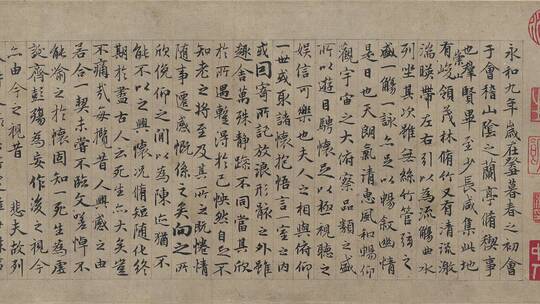 永和九年歲在癸丑暮春之初會
于會稽山陰之蘭亭脩稧事
也群賢畢至少長咸集此地
有崇山峻領茂林脩竹又有清流激
湍暎帶左右引以為流觴曲水
列坐其次雖無絲竹管弦之
盛一觴一詠亦足以暢叙幽情
是日也天朗氣清惠風和暢仰
觀宇宙之大俯察品類之盛
所以遊目騁懷足以極視聽之
娛信可樂也夫人之相與俯仰
一世或取諸懷抱悟言一室之內
或因寄所託放浪形骸之外雖
趣舍萬殊靜躁不同當其欣
於所遇蹔得於己怏然自足不
知老之將至及其所之既惓情
隨事遷感慨係之矣向之所
欣俛仰之間以為陳迹猶不
能不以之興懷況脩短隨化終
期於盡古人云死生亦大矣豈
不痛哉每攬昔人興感之由
若合一契未嘗不臨文嗟悼不
能喻之於懷固知一死生為虛
誕齊彭殤為妄作後之視今
亦由今之視昔 悲夫故列